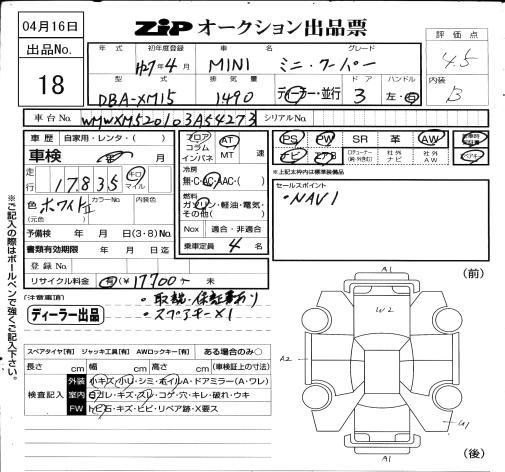 04月16日
ZIP オークション出品票
出品No.
18
年式 初年度登録 車名 グレード 評価点
H27年4月 MINI ミニ・クーパー 4.5
型式 排気量 ドア ハンドル 内装
DBA-XM15 1490 ディーラー・並行 3 左・右 B
車台No. WMWXM520103A54273 シリアルNo.
車歴 自家用・レンタ・( )
車検 年 月
走行 17,835 km マイル
色 (元色) ホワイトII カラーNo. 内装色
予備検 年 月 日(3・8)No.
書類有効期限 年 月 日迄
登録No.
リサイクル料金 有(¥17700) 未
フロア コラム インパネ AT MT 速
冷房 無・C・AC・AAC・( )
燃料 ガソリン・軽油・電気・その他( )
Nox 適合・非適合
乗車定員 4 名
PS PW SR 革 AW
ナビ エアB 社外ナビ 社外AW
※上記太枠内は標準装備品
セールスポイント
・NAVI
(注意事項)
ディーラー出品
・取説・保証書有り
・スペアキー×1
スペアタイヤ[有] ジャッキ工具[有] AWロックキー[有] ある場合のみ○
長さ cm 幅 cm 高さ cm (車検証上の寸法)
検査記入
外装 小キズ・小U・シミ・ホイルA・ドアミラー(A・ワレ)
室内 日ガレ・キズ・スレ・コゲ・穴・キレ・破れ・ウキ
FW トビ石・キズ・ヒビ・リペア跡・X要ス
※ご記入の際はボールペンで強くご記入下さい。
(前)
A1
W2
A2
A1
(後)